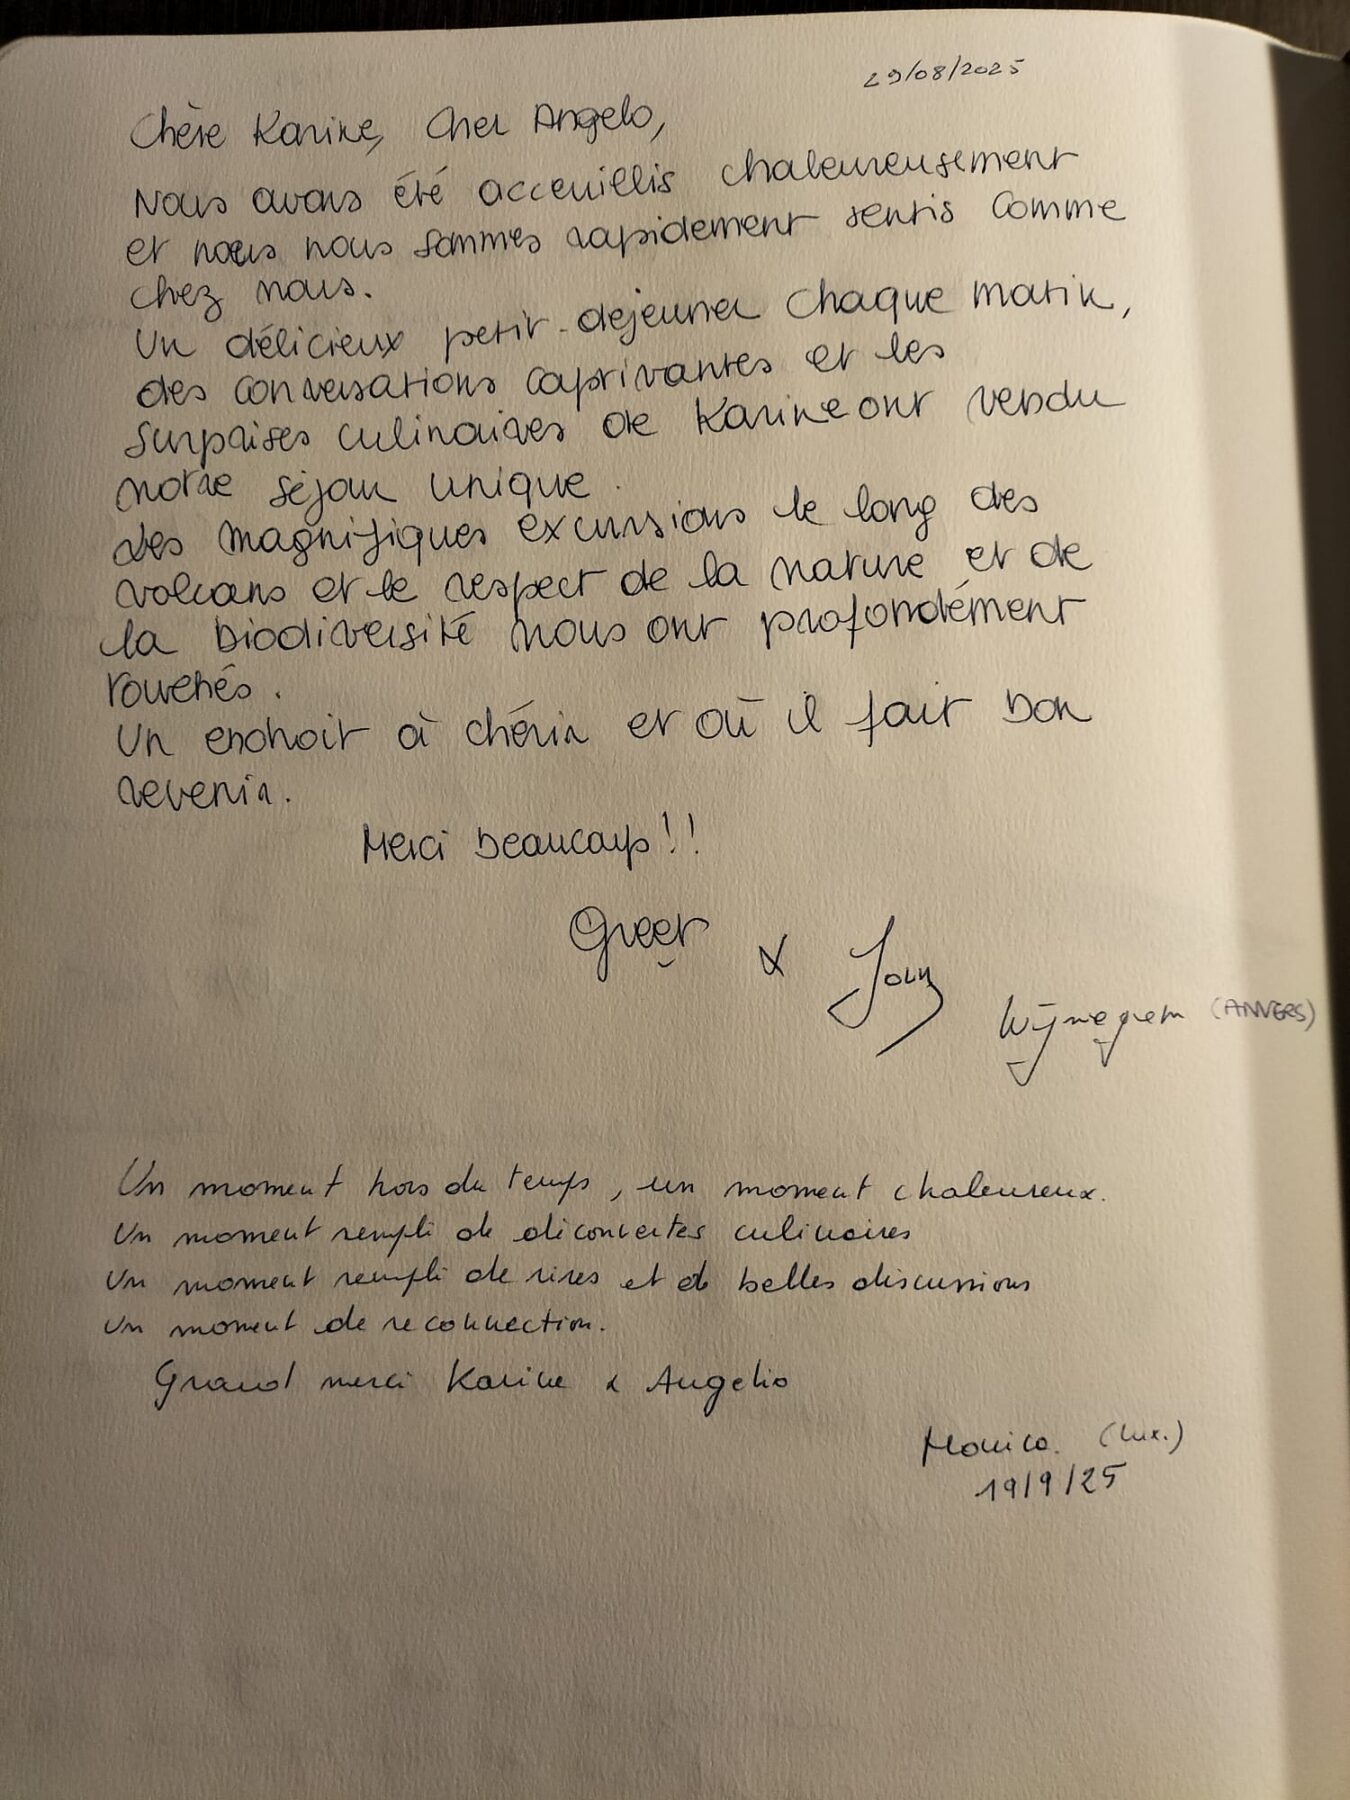 29/08/2025
Chère Karine, Cher Angelo,
Nous avons été acceuillis chaleureusement
et nous nous sommes rapidement sentis comme
chez nous.
Un délicieux petit-dejeuner chaque matin,
des conversations captivantes et les
surprises culinaires de Karine ont rendu
notre séjour unique.
Les magnifiques excursions le long des
volcans et le respect de la nature et de
la biodiversité nous ont profondément
touchés.
Un endroit à chérir et où il fait bon
revenir.
Merci beaucoup!!
Greet &
Wijnegem (ANVERS)
Un moment hors du temps, un moment chaleureux.
Un moment rempli de découvertes culinaires
Un moment rempli de rires et de belles discussions
Un moment de reconnection.
Grand merci Karine & Angelio
Monica. (Lux.)
19/9/25